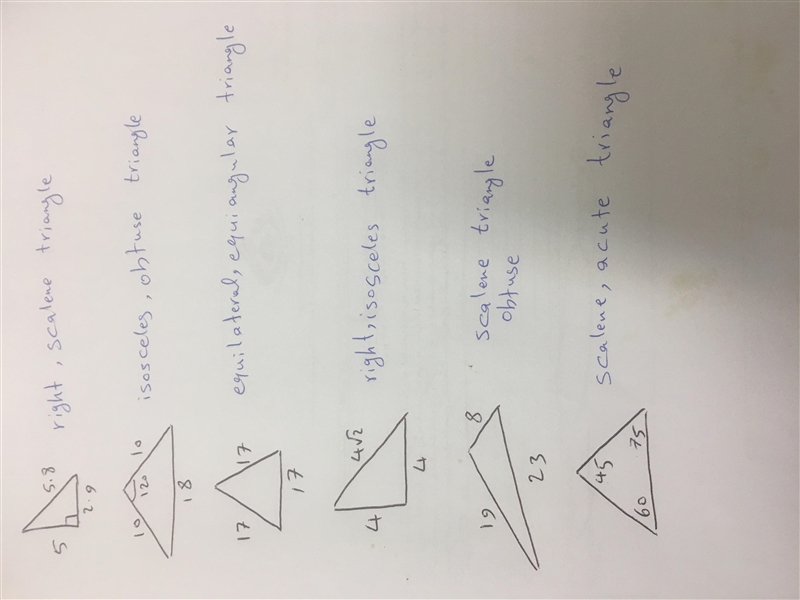 5
5.8
2.9
right, scalene triangle
10
120
10
18
isosceles, obtuse triangle
17
17
17
equilateral, equiangular triangle
4
4√2
4
right, isosceles triangle
19
8
23
scalene triangle
obtuse
45
60
75
scalene, acute triangle